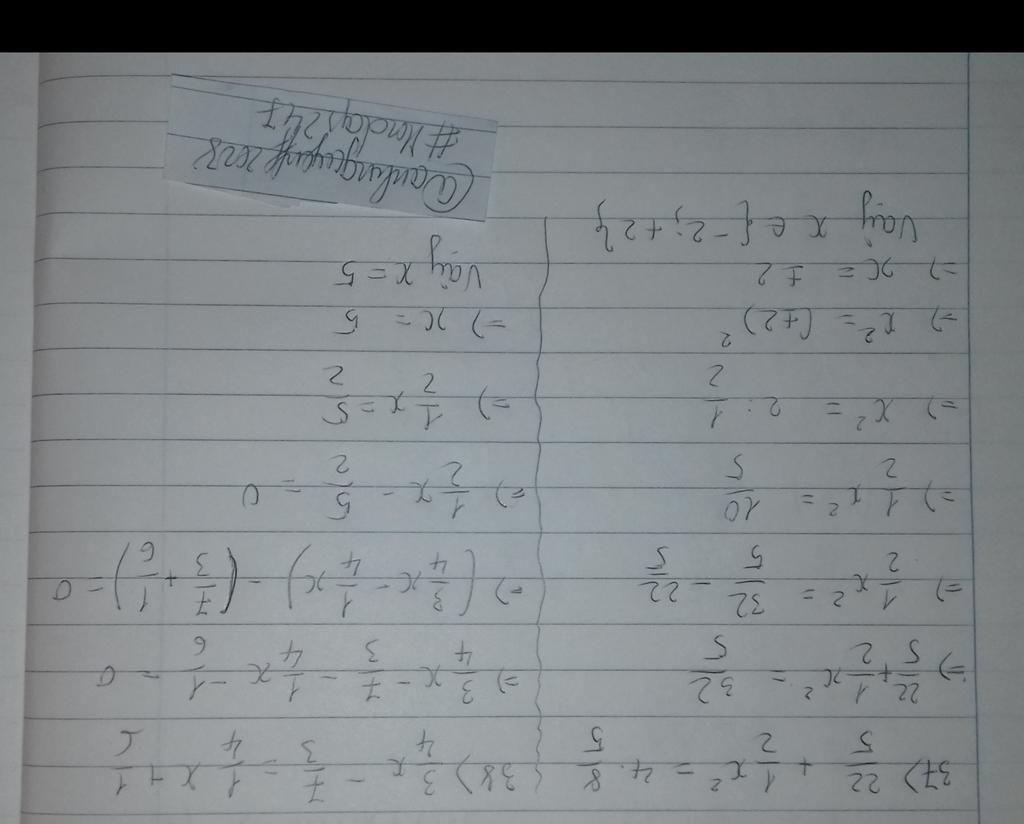 37) 22/5 + 1/2 x² = 4. 8/5
=> 22/5 + 1/2 x² = 32/5
=> 1/2 x² = 32/5 - 22/5
=> 1/2 x² = 10/5
=> x² = 2 : 1/2
=> x² = (±2)²
=> x = ±2
Vậy x ∈ {-2; +2}
38) 3/4 x - 7/3 = 1/4 x + 1/6
=> 3/4 x - 7/3 - 1/4 x - 1/6 = 0
=> (3/4 x - 1/4 x) - (7/3 + 1/6) = 0
=> 1/2 x - 5/2 = 0
=> 1/2 x = 5/2
=> x = 5
Vậy x = 5
#Hoidap247